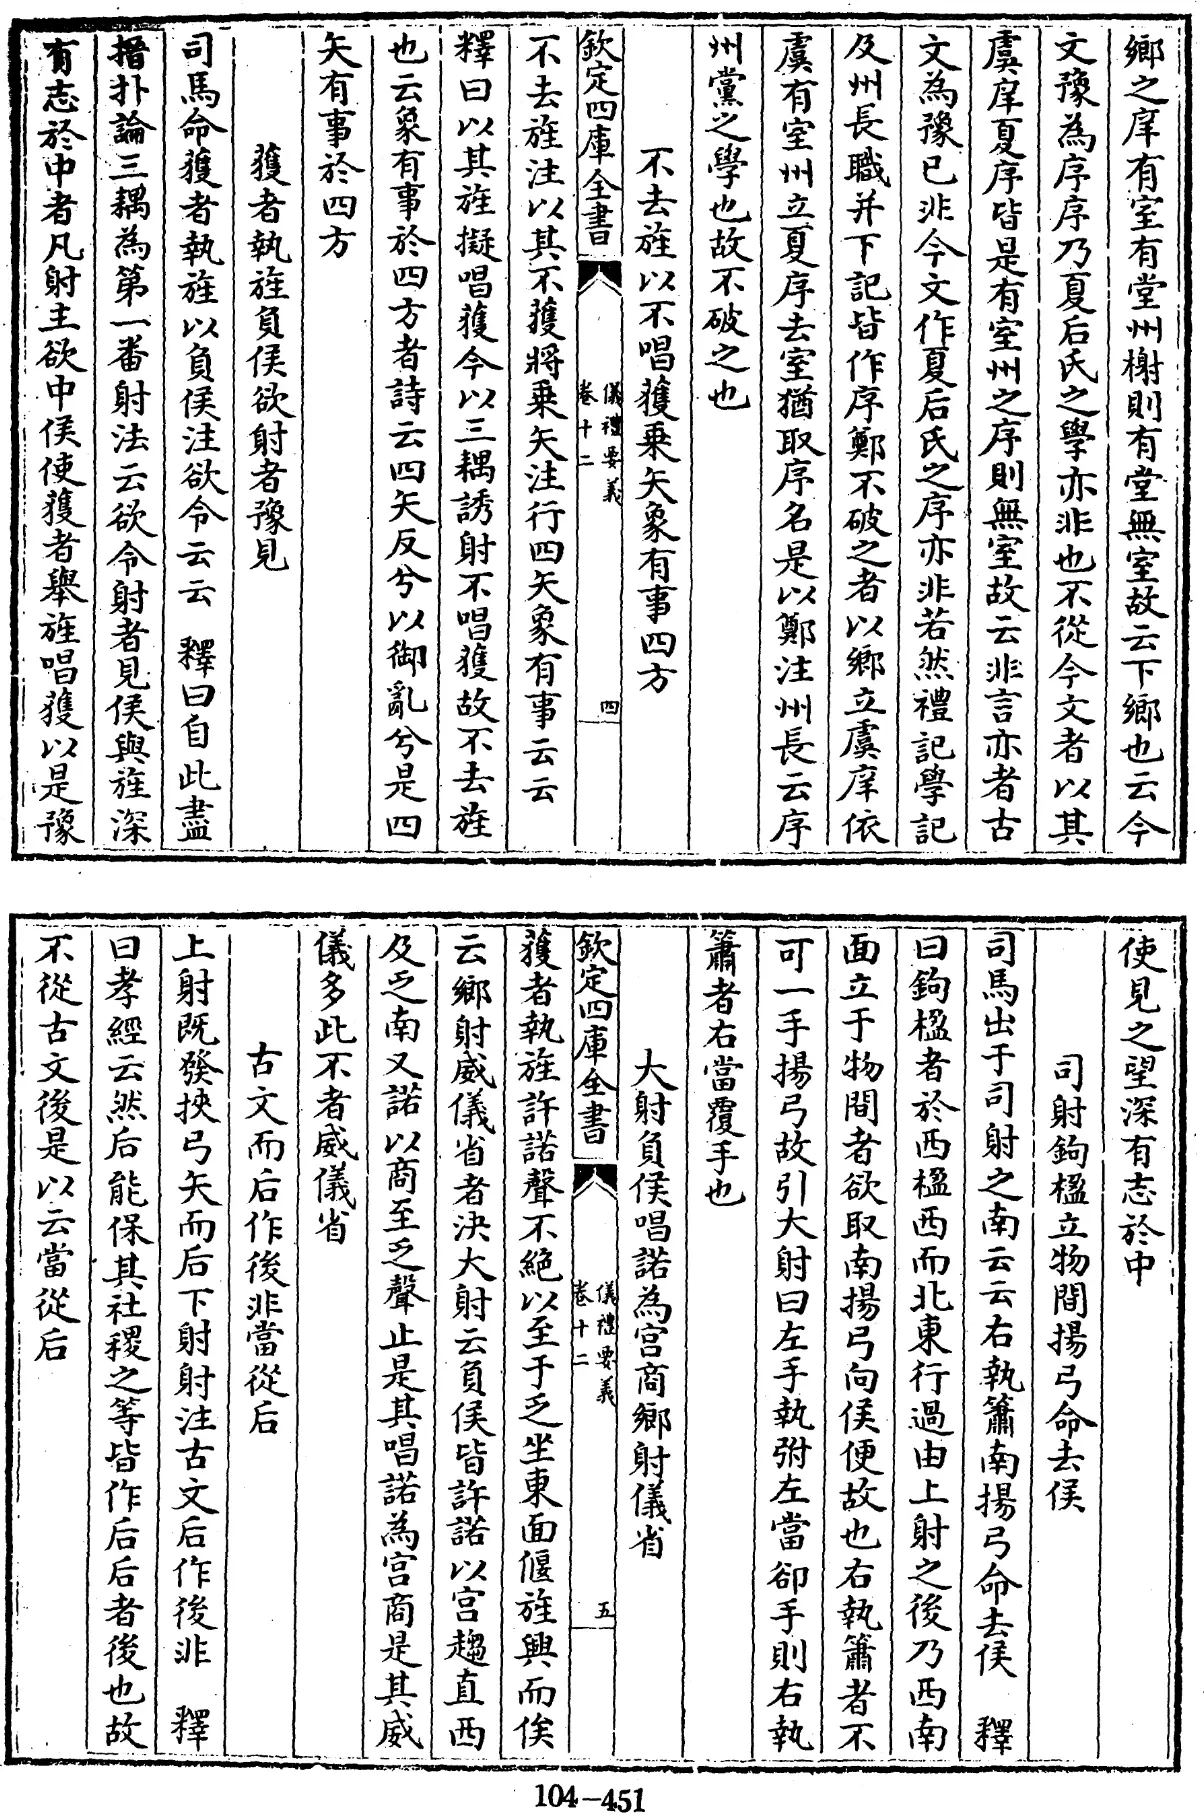 鄉之庠有室有堂州榭則有堂無室故云下鄉也云今
文豫為序序乃夏后氏之學亦非也不從今文者以其
虞庠夏序皆是有室州之序則無室故云非言亦者古
文為豫已非今文作夏后氏之序亦非若然禮記學記
及州長職并下記皆作序鄭不破之者以鄉立虞庠依
虞有室州立夏序去室猶取序名是以鄭注州長云序
州黨之學也故不破之也
不去旌以不唱獲乗矢象有事四方
欽定四庫全書
儀禮要義
卷十二
四
不去旌注以其不獲將乗矢注行四矢象有事云云
釋曰以其旌擬唱獲今以三耦誘射不唱獲故不去旌
也云象有事於四方者詩云四矢反兮以御亂兮是四
矢有事於四方
獲者執旌負侯欲射者豫見
司馬命獲者執旌以負侯注欲令云云 釋曰自此盡
搢扑論三耦為第一番射法云欲令射者見侯與旌深
有志於中者凡射主欲中侯使獲者舉旌唱獲以是豫
使見之望深有志於中
司射鉤楹立物間揚弓命去侯
司馬出于司射之南云云右執簫南揚弓命去侯 釋
曰鉤楹者於西楹西而北東行過由上射之後乃西南
面立于物間者欲取南揚弓向侯便故也右執簫者不
可一手揚弓故引大射曰左手執弣左當卻手則右執
簫者右當覆手也
大射負侯唱諾為宮商鄉射儀省
欽定四庫全書
儀禮要義
卷十二
五
獲者執旌許諾聲不絶以至于乏坐東面偃旌興而俟
云鄉射威儀省者決大射云負侯皆許諾以宮趨直西
及乏南又諾以商至乏聲止是其唱諾為宮商是其威
儀多此不者威儀省
古文而后作後非當從后
上射既發挾弓矢而后下射射注古文后作後非 釋
曰孝經云然后能保其社稷之等皆作后后者後也故
不從古文後是以云當從后
104-451